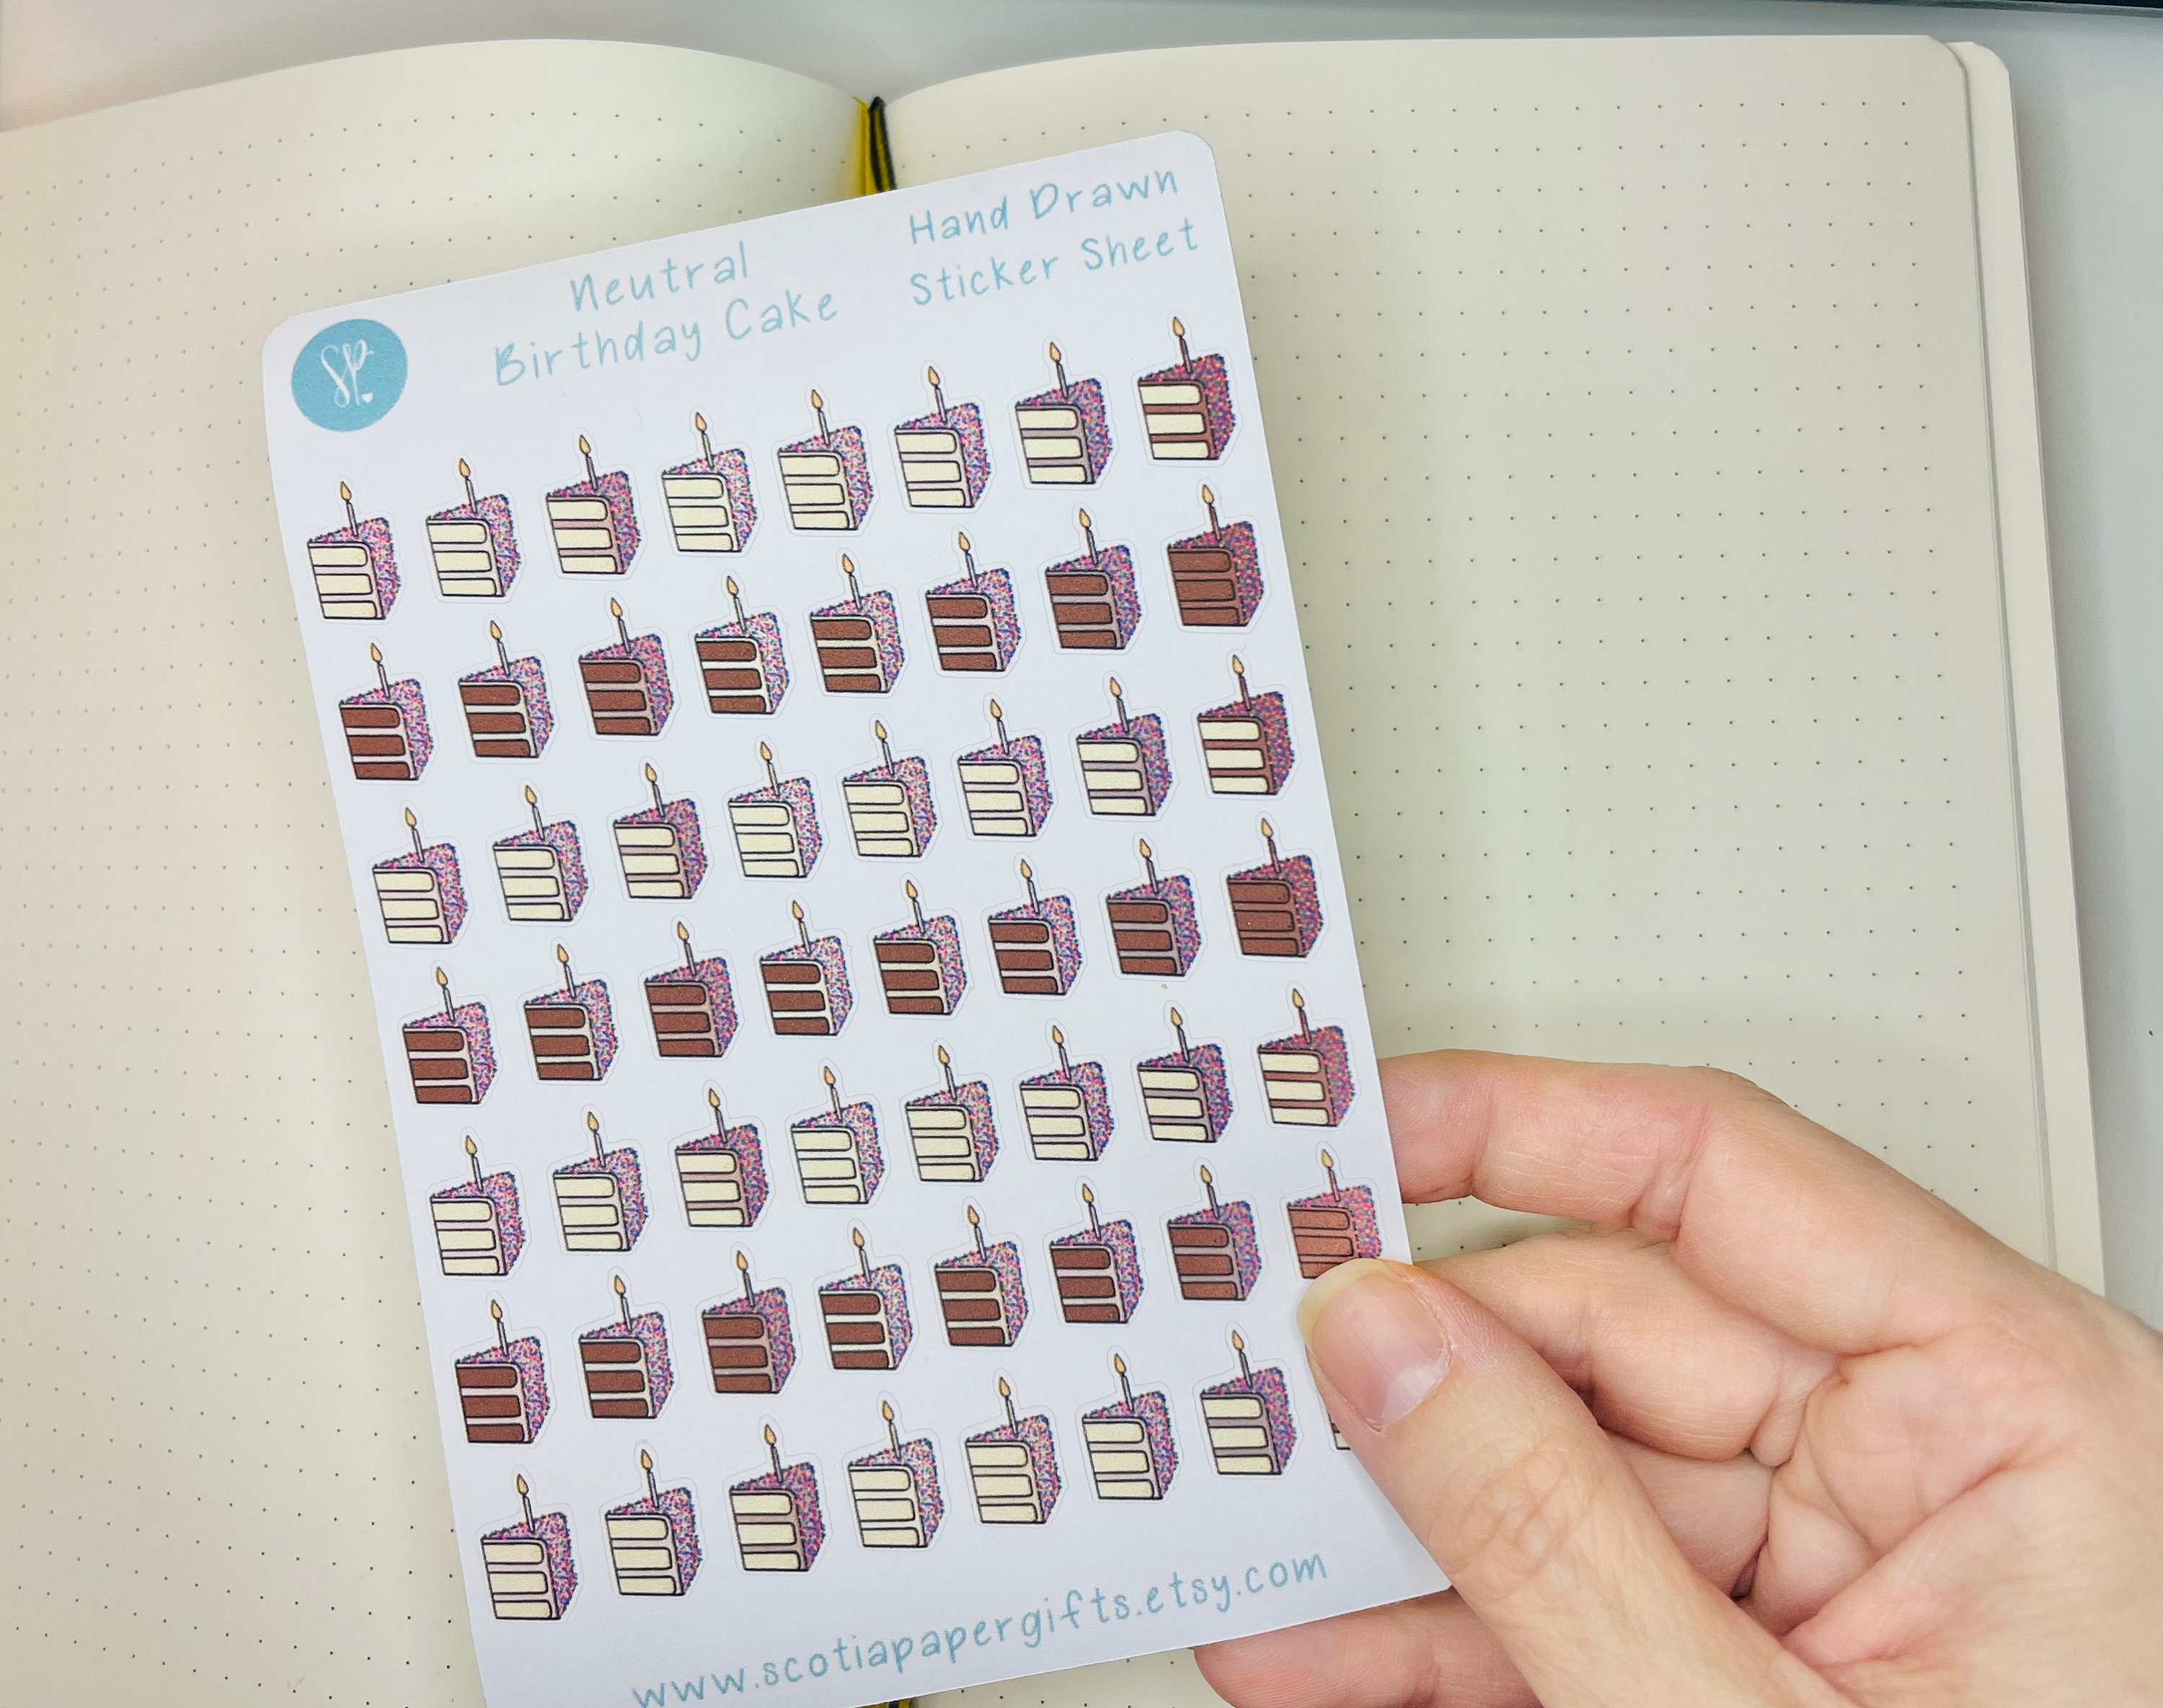 SP
Neutral
Birthday Cake
Hand Drawn
Sticker Sheet
www.scotiapapergifts.etsy.com